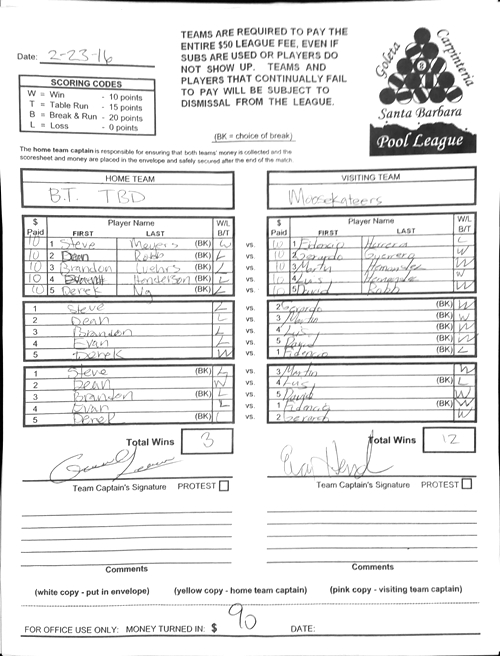 Date: 2-23-16
SCORING CODES
W = Win - 10 points
T = Table Run - 15 points
B = Break & Run - 20 points
L = Loss - 0 points
TEAMS ARE REQUIRED TO PAY THE
ENTIRE $50 LEAGUE FEE, EVEN IF
SUBS ARE USED OR PLAYERS DO
NOT SHOW UP. TEAMS AND
PLAYERS THAT CONTINUALLY FAIL
TO PAY WILL BE SUBJECT TO
DISMISSAL FROM THE LEAGUE.
(BK = choice of break)
Goleta Carpinteria
8
Santa Barbara
Pool League
The home team captain is responsible for ensuring that both teams' money is collected and the
scoresheet and money are placed in the envelope and safely secured after the end of the match.
HOME TEAM
B.T. TBD
VISITING TEAM
Moosekateers
$ Paid Player Name FIRST LAST W/L B/T
$ Paid Player Name FIRST LAST W/L B/T
10 1 Steve Meyers (BK) W vs. 10 1 Fidencio Herrera L
10 2 Dean Robb (BK) L vs. 10 2 Gerardo Guerrero W
10 3 Brandon (BK) L vs. 10 3 Martin Hernandez W
10 4 Henderson (BK) L vs. 10 4 Luis W
10 5 Derek Ng (BK) L vs. 10 5 David Robb W
1 Steve L vs. 2 Gerardo (BK) W
2 Dean L vs. 3 Martin (BK) W
3 Brandon L vs. 4 Luis (BK) W
4 Evan L vs. 5 David (BK) W
5 Derek W vs. 1 Fidencio (BK) L
1 Steve (BK) L vs. 3 Martin W
2 Dean W vs. 4 Luis (BK) L
3 Brandon (BK) L vs. 5 David W
4 Evan L vs. 1 Fidencio (BK) W
5 Derek (BK) L vs. 2 Gerardo W
Total Wins 3
Total Wins 12
Team Captain's Signature PROTEST
Team Captain's Signature PROTEST
Comments
Comments
(white copy - put in envelope) (yellow copy - home team captain) (pink copy - visiting team captain)
FOR OFFICE USE ONLY: MONEY TURNED IN: $ 90 DATE: